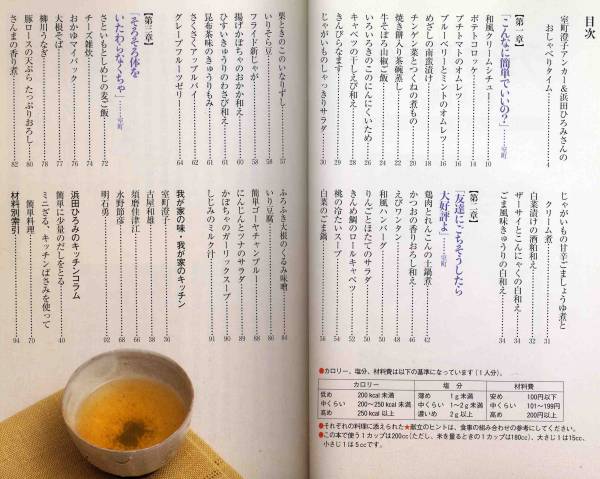 目次
室町澄子アンカー＆浜田ひろみさんの
おしゃべりタイム 4
【第一章】
「こんなに簡単でいいの？」…室町
和風クリームシチュー 10
ポテトコロッケ 14
プチトマトのオムレツ 16
ブルーベリーとミントのオムレツ 16
めざしの南蛮漬け 18
チンゲン菜とつくねの煮もの 20
焼き餅入り茶碗蒸し 22
牛そぼろ山椒ご飯 24
いろいろきのこのにんにくいため 26
キャベツの干しえび和え
きんぴらなます
じゃがいものしゃっきりサラダ 30
じゃがいもの甘辛ごましょうゆ煮と
クリーム煮 31
白菜漬けの酒粕和え
ザーサイとこんにゃくの白和え 34
ごま風味きゅうりの白和え 34
【第二章】
「友達にごちそうしたら
大好評よ」…室町
鶏肉とれんこんの土鍋煮 42
かつおの香りおろし和え
えびワンタン 46
和風ハンバーグ 48
りんごとほたてのサラダ 50
きんめ鯛のロールキャベツ 52
桃の冷たいスープ 54
白菜のごま鍋 56
栗ときのこのいなりずし 57
いりそら豆
フライド新じゃが 58
揚げかぼちゃのおかか和え 60
ひすいきゅうりのわさび和え
昆布茶味のきゅうりもみ
さくさくアップルパイ 62
グレープフルーツゼリー 64
【第三章】
「そろそろ体を
いたわらなくちゃ」…室町
さといもとしめじの麦ご飯 72
チーズ雑炊 74
大根そば
おかゆマイパック 76
柳川うなぎ
豚ロースの天ぷら たっぷりおろし 80
さんまの香り煮 82
ふろふき大根のくるみ味噌 84
いり豆腐 86
簡単ゴーヤチャンプルー 86
にんじんとツナのサラダ 88
かぼちゃのガーリックスープ 90
しじみのミルク汁 91
我が家の味・我が家のキッチン
室町澄子 36
古屋和雄
須磨佳津江
水野節彦
明石勇 92
浜田ひろみのキッチンコラム
簡単に少量のだしをとる 40
ミニざる、キッチンばさみを使って
簡単料理 70
材料別索引 94
●カロリー、塩分、材料費は以下の基準になっています（1人分）。
カロリー 塩分 材料費
低め 200 kcal 未満 薄め 1g 未満 安め 100円以下
中くらい 200～250 kcal 未満 中くらい 1～2g 未満 中くらい 101～199円
高め 250 kcal 以上 濃いめ 2g 以上 高め 200円以上
●それぞれの料理に添えられた★献立のヒントは、食事の組み合わせの参考にしてください。
●この本で使う1カップは200cc（ただし、米を量るときの1カップは180cc）、大さじ1は15cc、
小さじ1は5ccです。